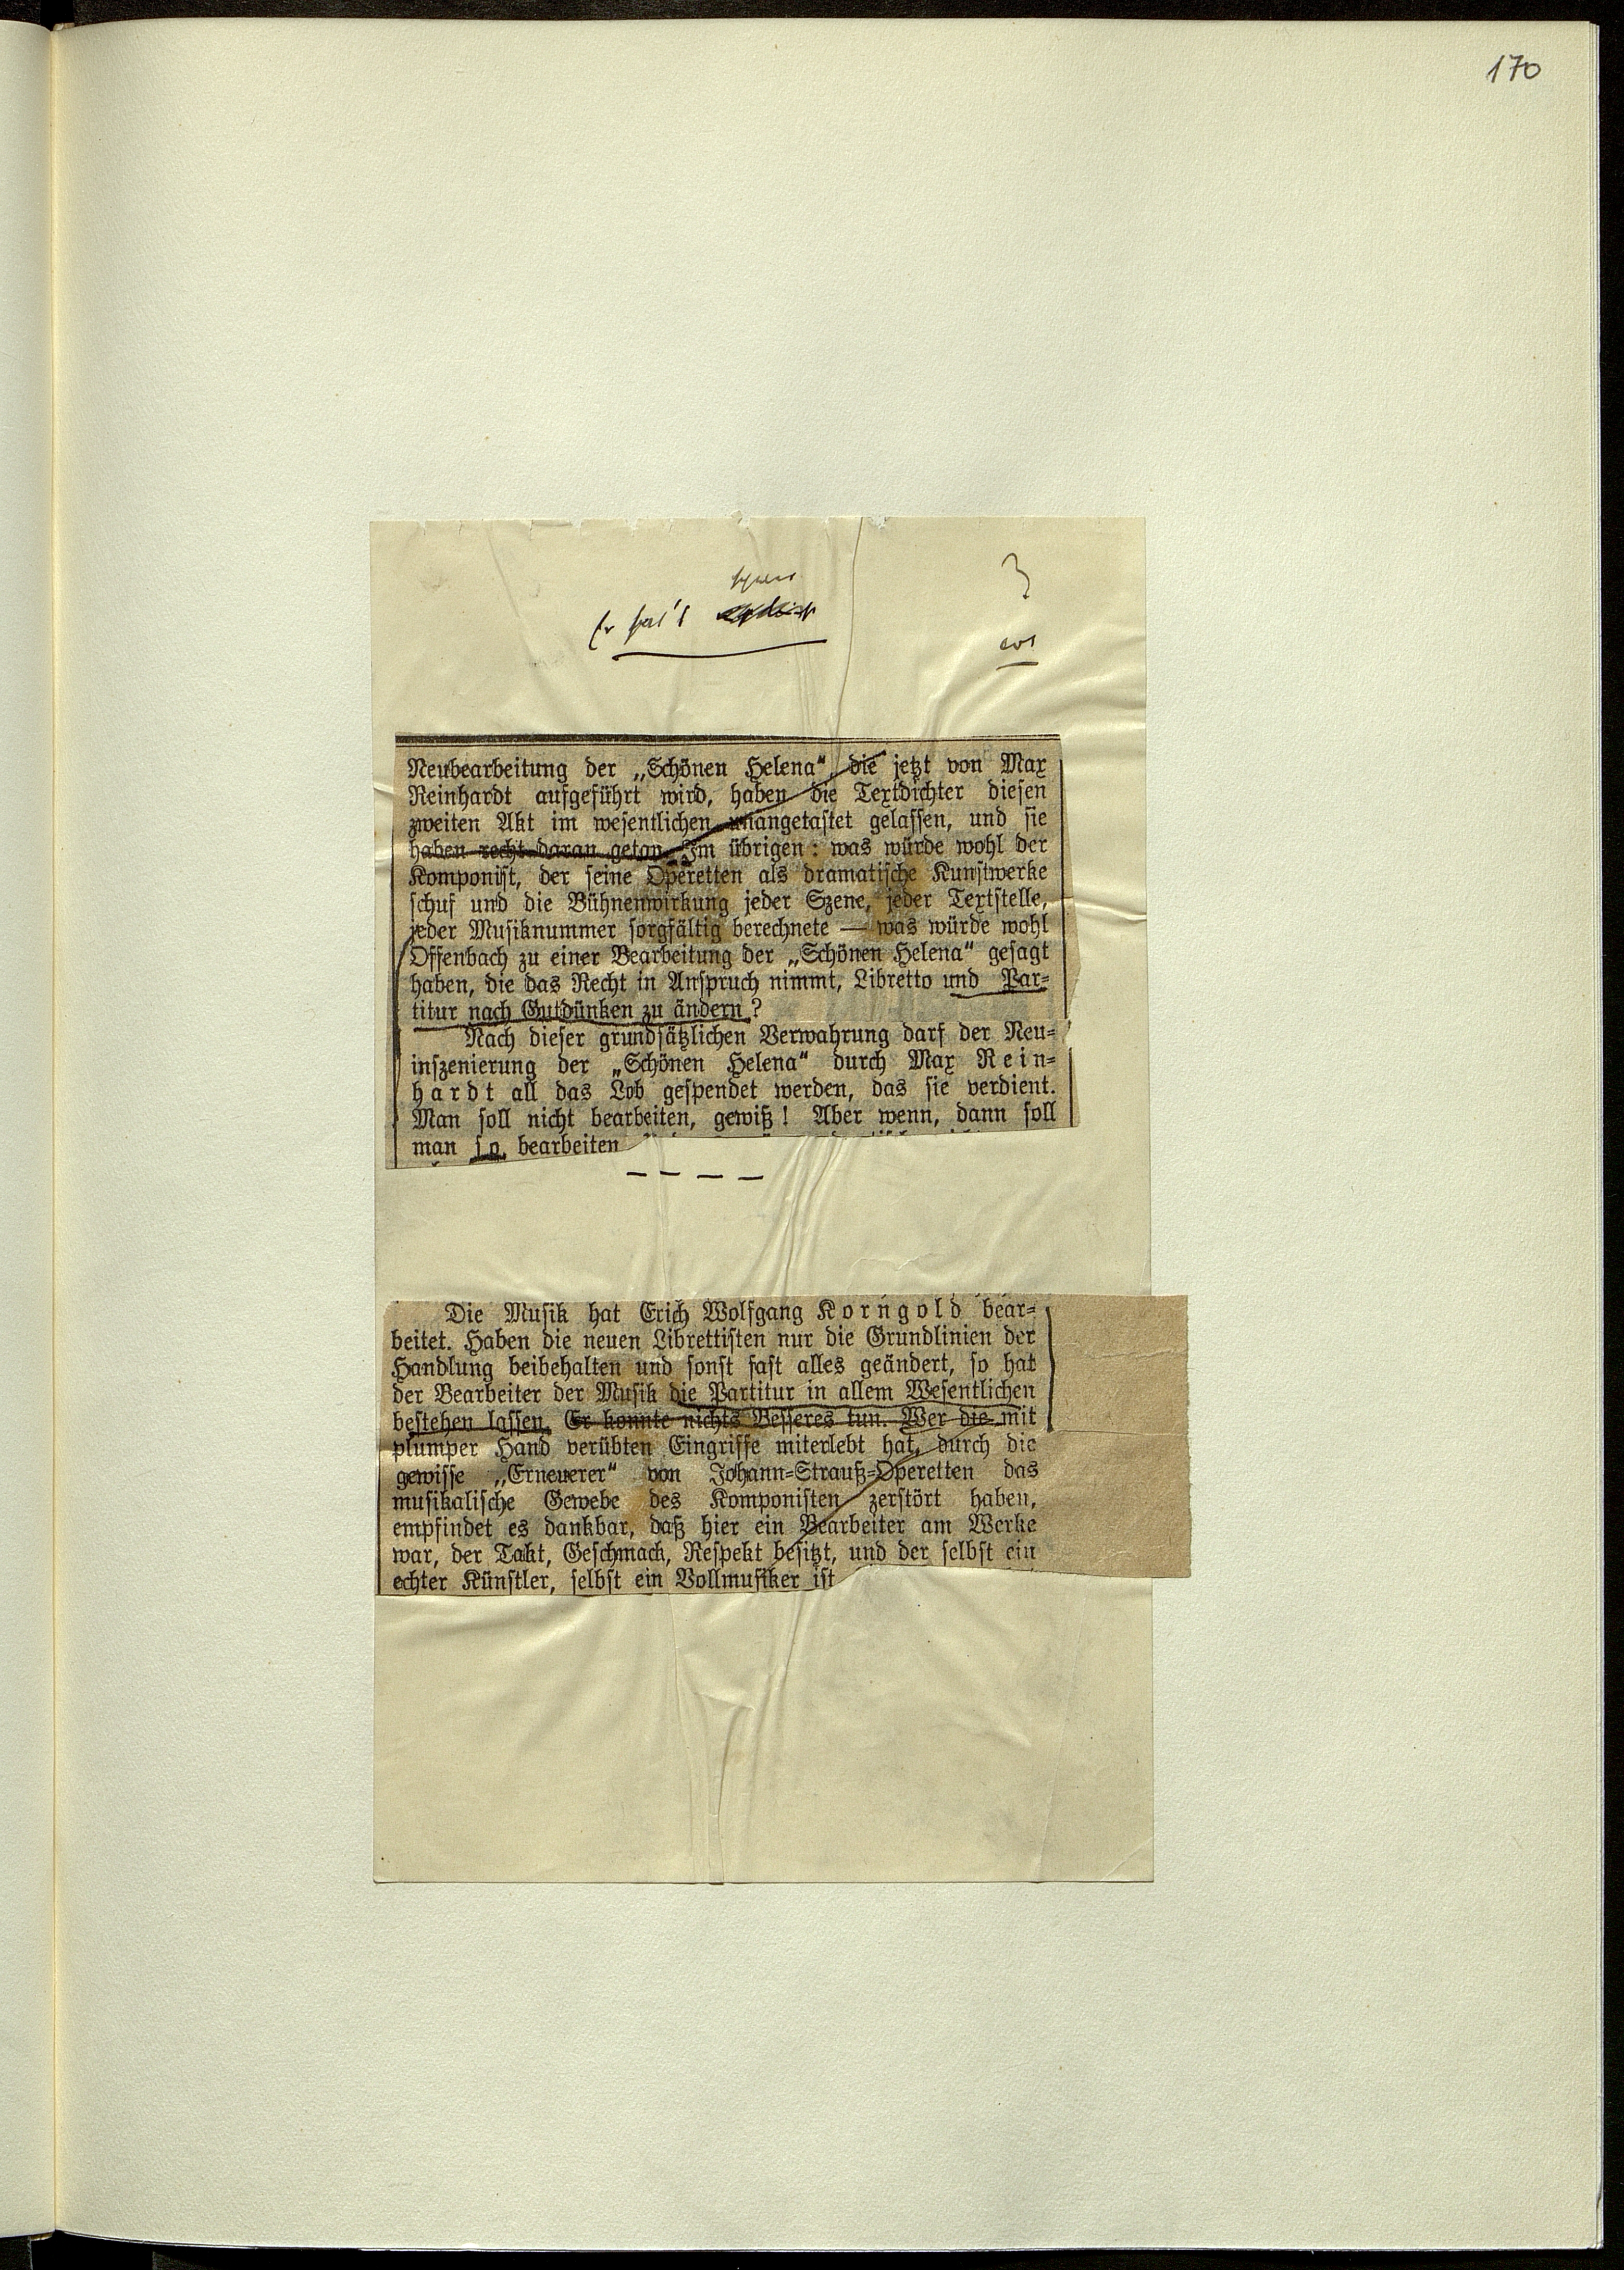 170
Er hat's
Neubearbeitung der „Schönen Helena“, die jetzt von Max
Reinhardt aufgeführt wird, haben die Textdichter diesen
zweiten Akt im wesentlichen unangetastet gelassen, und sie
haben recht daran getan. Im übrigen: was würde wohl der
Komponist, der seine Operetten als dramatische Kunstwerke
schuf und die Bühnenwirkung jeder Szene, jeder Textstelle,
jeder Musiknummer sorgfältig berechnete — was würde wohl
Offenbach zu einer Bearbeitung der „Schönen Helena“ gesagt
haben, die das Recht in Anspruch nimmt, Libretto und Par-
titur nach Gutdünken zu ändern?
Nach dieser grundsätzlichen Verwahrung darf der Neu-
inszenierung der „Schönen Helena“ durch Max Rein-
hardt all das Lob gespendet werden, das sie verdient.
Man soll nicht bearbeiten, gewiß! Aber wenn, dann soll
man so bearbeiten
– – – –
Die Musik hat Erich Wolfgang Korngold bear-
beitet. Haben die neuen Librettisten nur die Grundlinien der
Handlung beibehalten und sonst fast alles geändert, so hat
der Bearbeiter der Musik die Partitur in allem Wesentlichen
bestehen lassen. Er konnte nichts Besseres tun. Wer die mit
plumper Hand verübten Eingriffe miterlebt hat, durch die
gewisse „Erneuerer“ von Johann-Strauß-Operetten das
musikalische Gewebe des Komponisten zerstört haben,
empfindet es dankbar, daß hier ein Bearbeiter am Werke
war, der Takt, Geschmack, Respekt besitzt, und der selbst ein
echter Künstler, selbst ein Vollmusiker ist